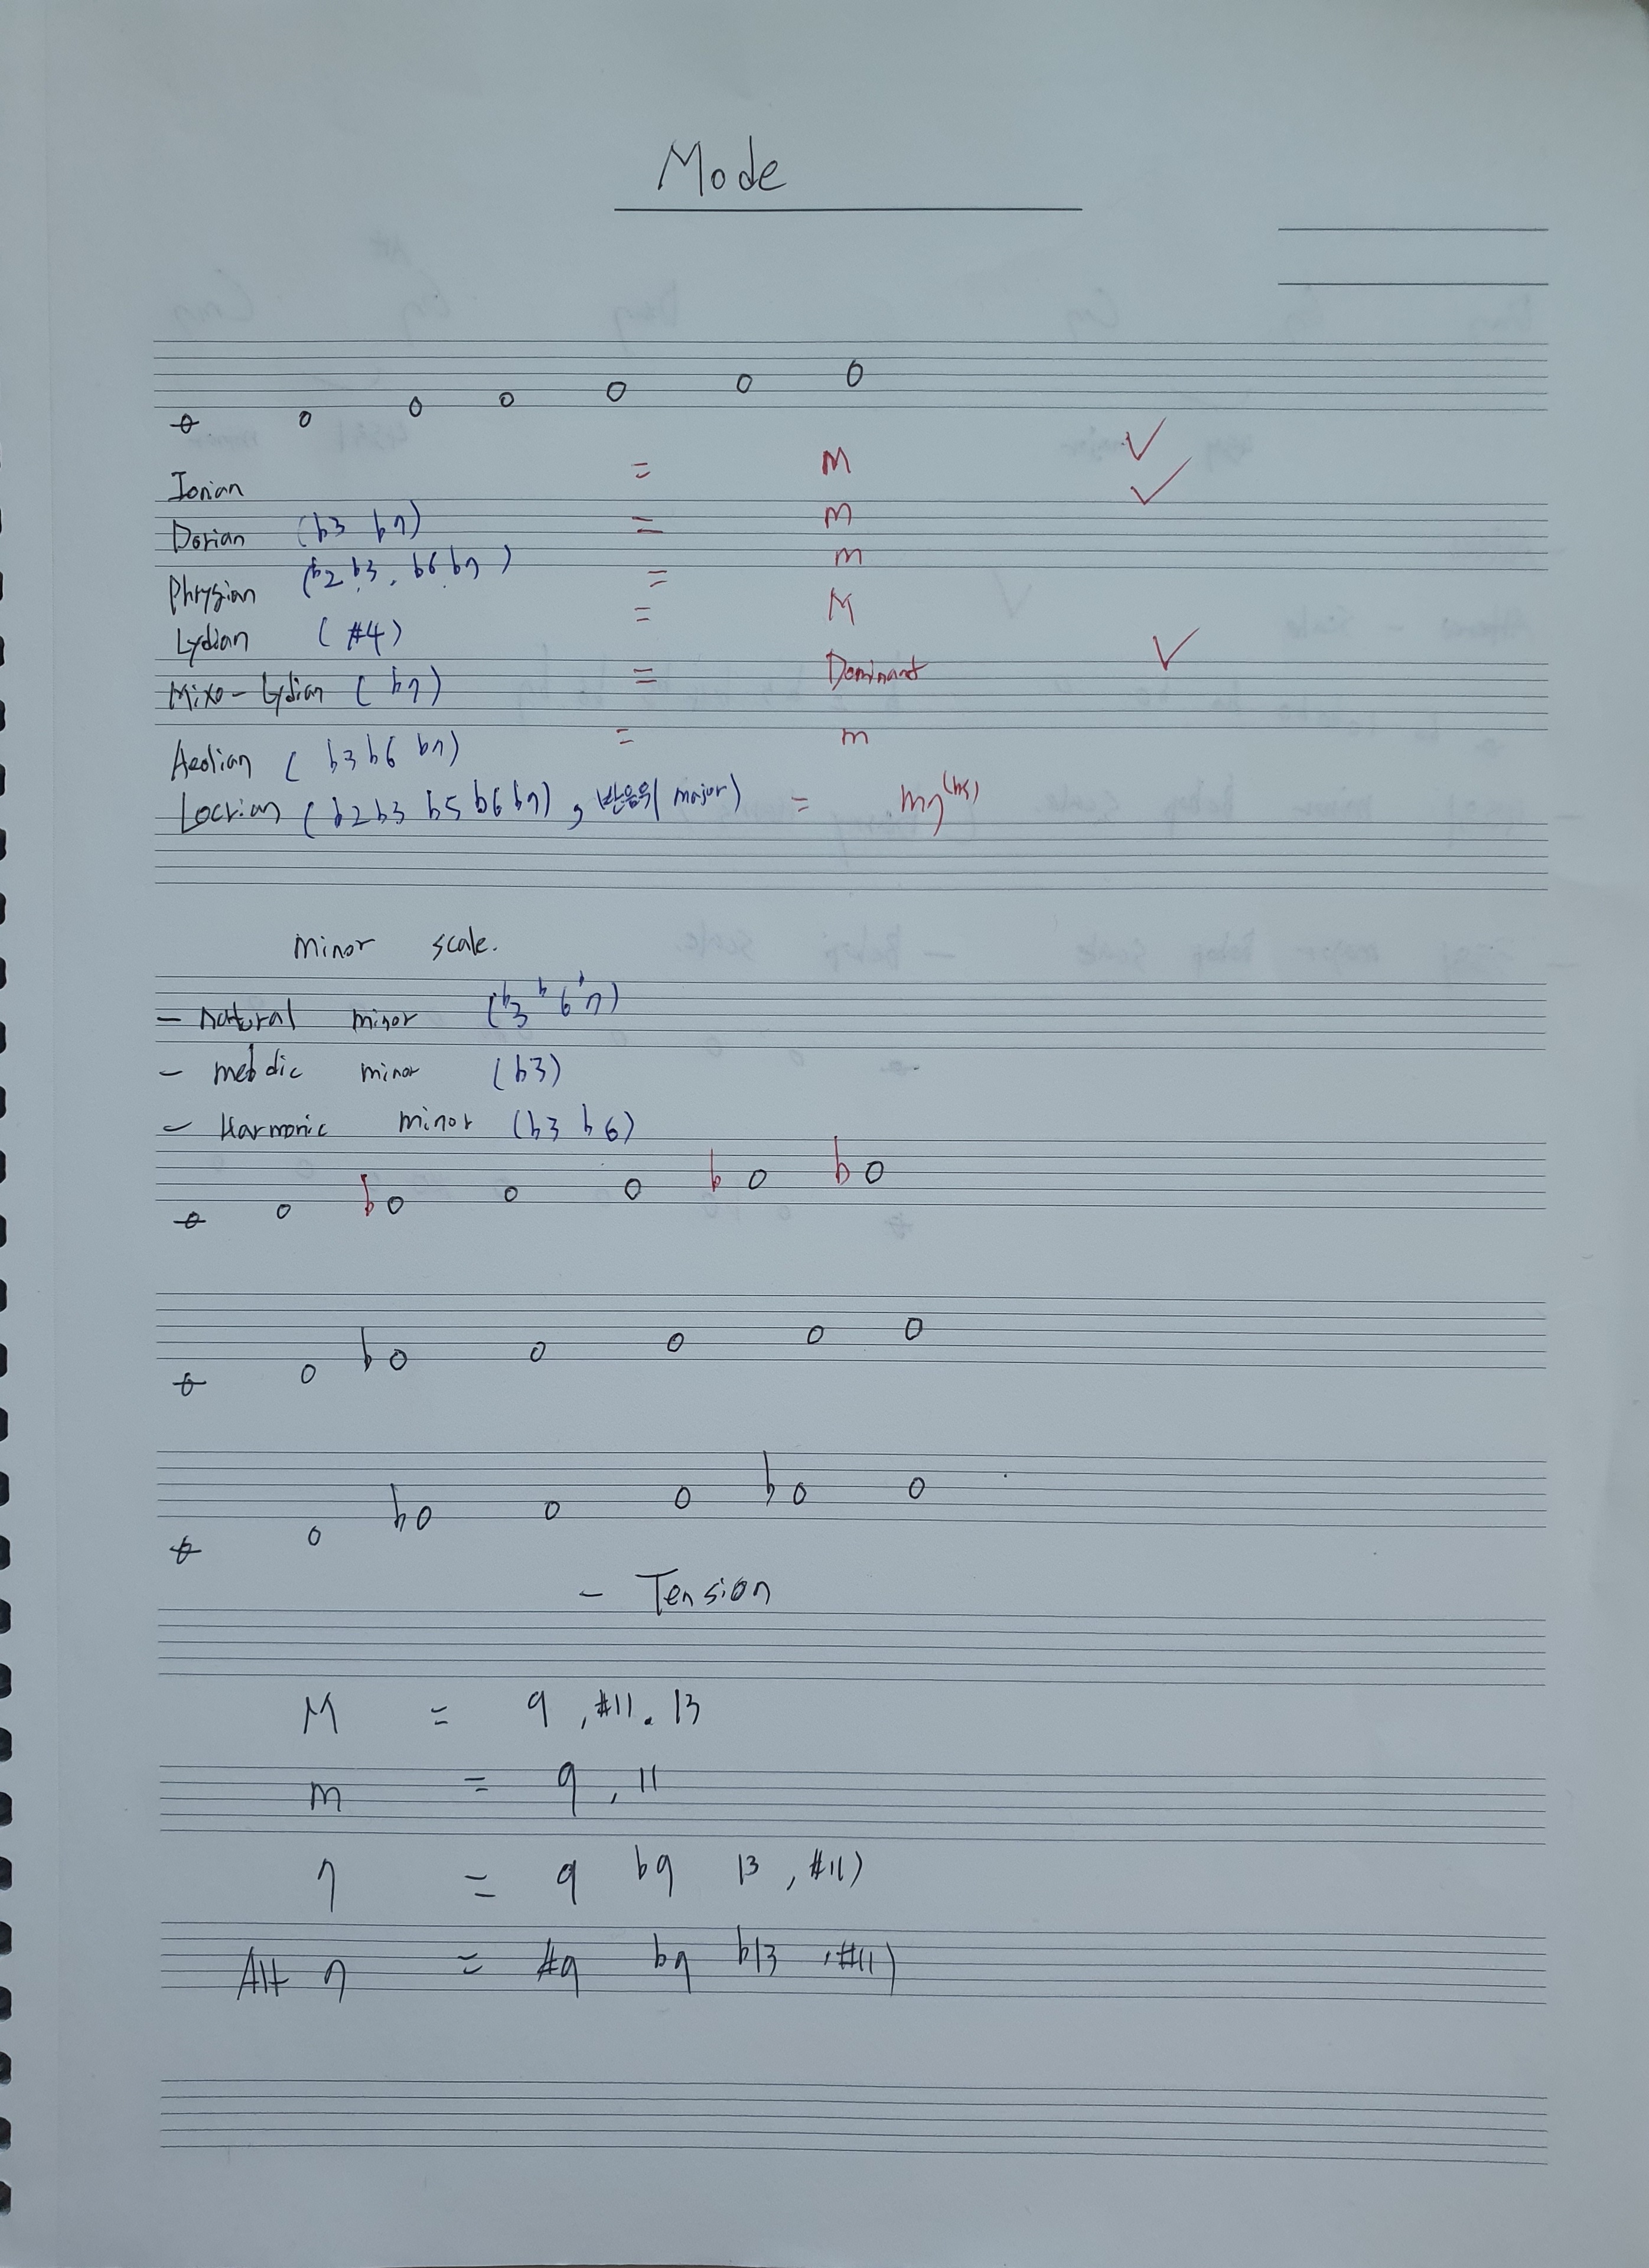 Mode
Ionian = M ✓
Dorian (b3 b7) = m ✓
Phrygian (b2 b3, b6 b7) = m
Lydian (#4) = M
Mixo-Lydian (b7) = Dominant ✓
Aeolian (b3 b6 b7) = m
Locrian (b2 b3 b5 b6 b7), 반음위(major) = m7(b5)
minor scale.
- natural minor (b3 b6 b7)
- melodic minor (b3)
- Harmonic minor (b3 b6)
- Tension
M = 9, #11. 13
m = 9, 11
7 = 9 b9 13, #11)
Alt 7 = #9 b9 b13, #11)